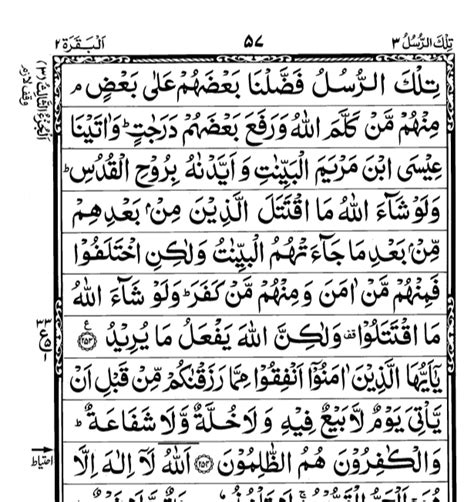 تِلْكَ الرُّسُلُ ٣
٥٧
اَلْبَقَرَة ٢
تِلْكَ الرُّسُلُ فَضَّلْنَا بَعْضَهُمْ عَلٰى بَعْضٍ ۘ
مِنْهُمْ مَّنْ كَلَّمَ اللّٰهُ وَرَفَعَ بَعْضَهُمْ دَرَجٰتٍ ؕ وَاٰتَيْنَا
عِيْسَى ابْنَ مَرْيَمَ الْبَيِّنٰتِ وَاَيَّدْنٰهُ بِرُوْحِ الْقُدُسِ ؕ
وَلَوْ شَآءَ اللّٰهُ مَا اقْتَتَلَ الَّذِيْنَ مِنْۢ بَعْدِهِمْ
مِّنْۢ بَعْدِ مَا جَآءَتْهُمُ الْبَيِّنٰتُ وَلٰكِنِ اخْتَلَفُوْا
فَمِنْهُمْ مَّنْ اٰمَنَ وَمِنْهُمْ مَّنْ كَفَرَ ؕ وَلَوْ شَآءَ اللّٰهُ
مَا اقْتَتَلُوْا ۟ وَلٰكِنَّ اللّٰهَ يَفْعَلُ مَا يُرِيْدُ ﴿٢٥٣﴾ ع
يٰۤاَيُّهَا الَّذِيْنَ اٰمَنُوْۤا اَنْفِقُوْا مِمَّا رَزَقْنٰكُمْ مِّنْ قَبْلِ اَنْ
يَّاْتِيَ يَوْمٌ لَّا بَيْعٌ فِيْهِ وَلَا خُلَّةٌ وَّلَا شَفَاعَةٌ ؕ
وَالْكٰفِرُوْنَ هُمُ الظّٰلِمُوْنَ ﴿٢٥٤﴾ اَللّٰهُ لَآ اِلٰهَ اِلَّا
اَلْجُزْءُ الثَّالِثُ (٣)
وقف لازم
احتیاط